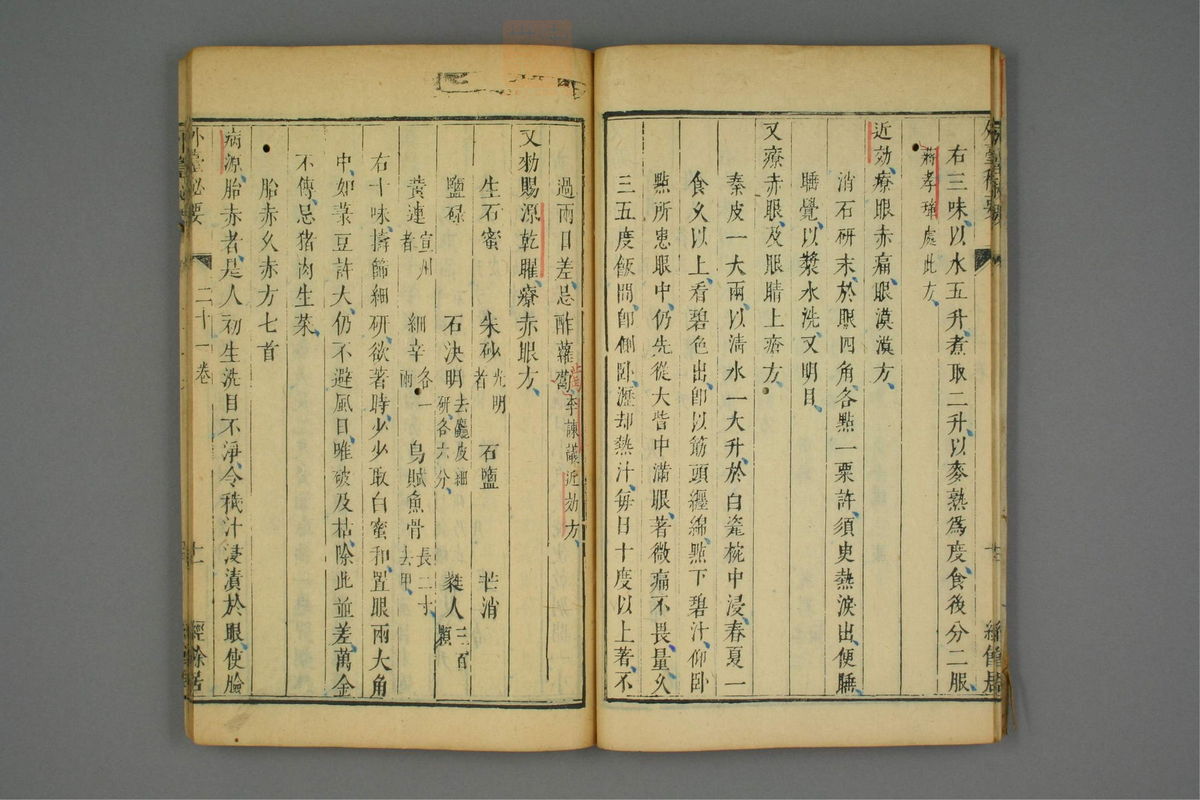 右三味以水五升煮取二升以麥熟爲度食後分二服
蔣孝璋處此方
近効療眼赤痛眼漠漠方
消石研末於眼四角各點一粟許須臾熱淚出便睡
睡覺以漿水洗又明目
又療赤眼及眼睛上瘡方
秦皮一大兩以淸水一大升於白瓷椀中浸春夏一
食久以上看碧色出卽以筋頭纏綿點下碧汁仰卧
點所患眼中仍先從大眥中滿眼著微痛不畏量久
三五度飯間卽側卧瀝却熱汁每日十度以上著不
過兩日差忌酢蘿蔔李諫議近効方
又勑賜源乾曜療赤眼方
生石蜜 朱砂光明者 石鹽 芒消
鹽碌 石決明去麤皮細研各六分 蕤人三百顆
黃連宣州者 細辛各一兩 烏賊魚骨長二寸去甲
右十味擣篩細研欲著時少少取白蜜和置眼兩大角
中如菉豆許大仍不避風日唯破及枯除此並差萬金
不傳忌猪肉生菜
胎赤久赤方七首
病源胎赤者是人初生洗目不淨令穢汁浸漬於眼使臉
外臺必要 二十一卷 十一 經餘居